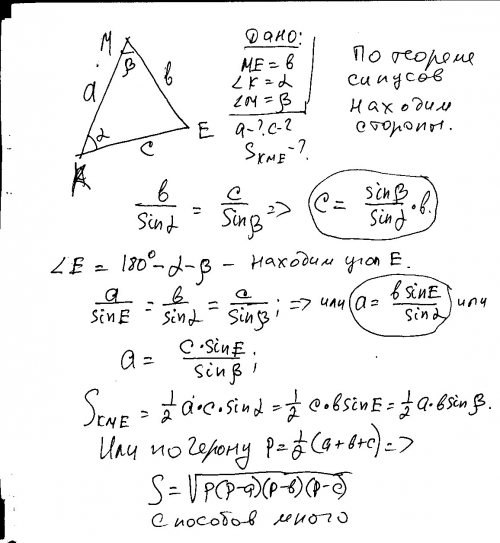 Дано:
ME = в
∠K = α
∠M = β
a-? c-?
S_KME-?
По теореме
синусов
находим
стороны.
M
β
a
в
α
c
E
K
в/sinα = c/sinβ => c = sinβ/sinα · в.
∠E = 180° - α - β - находим угол E.
a/sinE = в/sinα = c/sinβ; => или a = в sinE/sinα или
a = c·sinE/sinβ;
S_KME = 1/2 a·c·sinα = 1/2 c·в sinE = 1/2 a·в sinβ.
Или по Герону p = 1/2 (a+в+c) =>
S = √p(p-a)(p-в)(p-c)
способов много